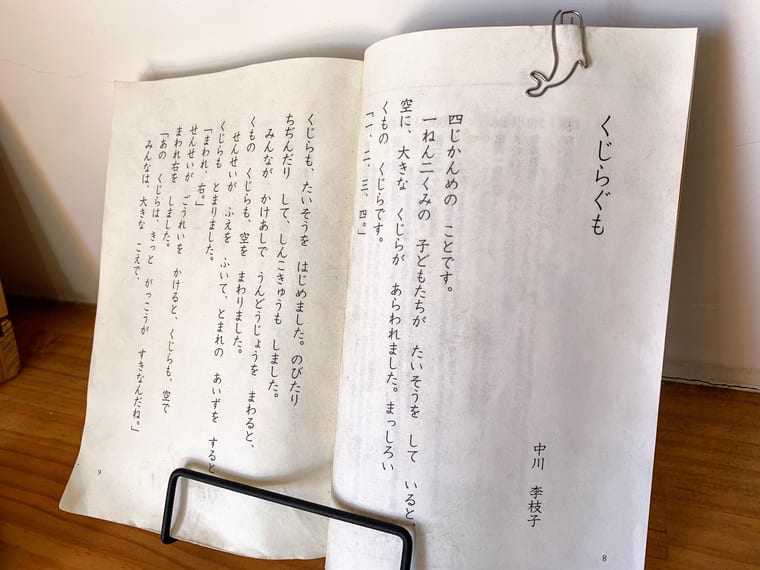 くじらぐも
中川 李枝子
四じかんめの ことです。
一ねん二くみの 子どもたちが たいそうを して いると、
空に、大きな くじらが あらわれました。まっしろい
くもの くじらです。
「一、二、三、四。」
8
くじらも、たいそうを はじめました。のびたり
ちぢんだり して、しんこきゅうも しました。
みんなが かけあしで うんどうじょうを まわると、
くもの くじらも、空を まわりました。
せんせいが ふえを ふいて、とまれの あいずを すると
くじらも とまりました。
「まわれ、右。」
せんせいが ごうれいを かけると、くじらも、空で
まわれ右を しました。
「あの くじらは、きっと がっこうが すきなんだね。」
みんなは、大きな こえで、
9